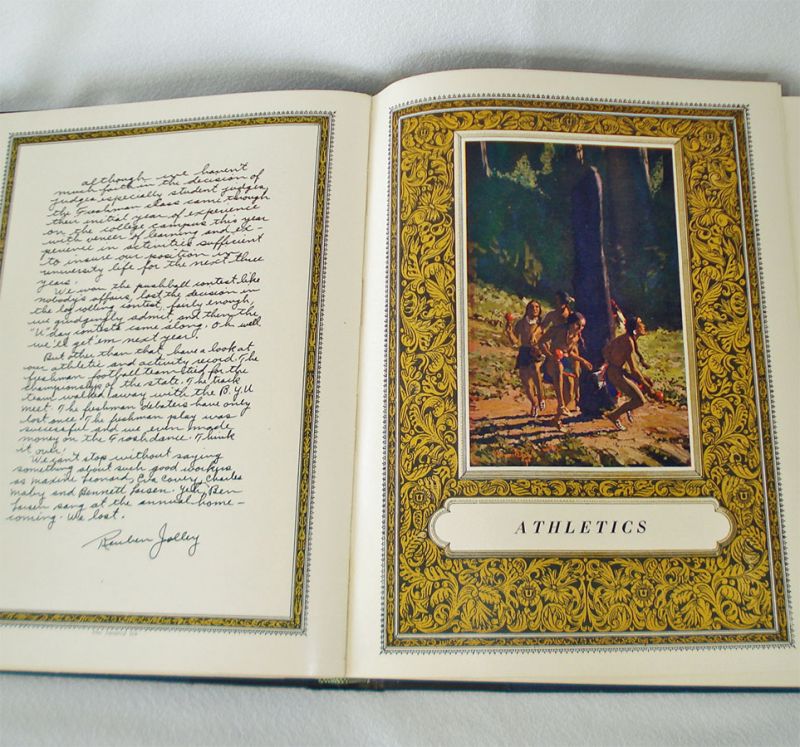 Although we haven't
much faith in the decision of
judges, especially student judges,
the Freshman class came through
their initial year of experience
on the college campus this year
with veneer of learning and ex-
perience in activities sufficient
to insure our position in
university life for the next three
years.
We won the pushball contest like
nobody's affairs, lost the decision in
the log rolling contest, fairly enough,
we grudgenfly admit, and then the
"U" day contests came along. Oh well
we'll get 'em next year!
But other than that, have a look at
our athletic and activity record. The
freshman football team tied for the
championship of the state. The track
team walked away with the B.Y.U
meet. The freshman debaters have only
lost once. The freshman play was
successful and we even made
money on the Frosh dance. Think
it over.
We can't stop without saying
something about such good workers
as Maxine Leonard, Eva Covey, Charles
Mabey and Bennett Larsen. Yes, Ben
Larsen sang at the annual home-
coming. We lost.
Reuben Jolley
ATHLETICS